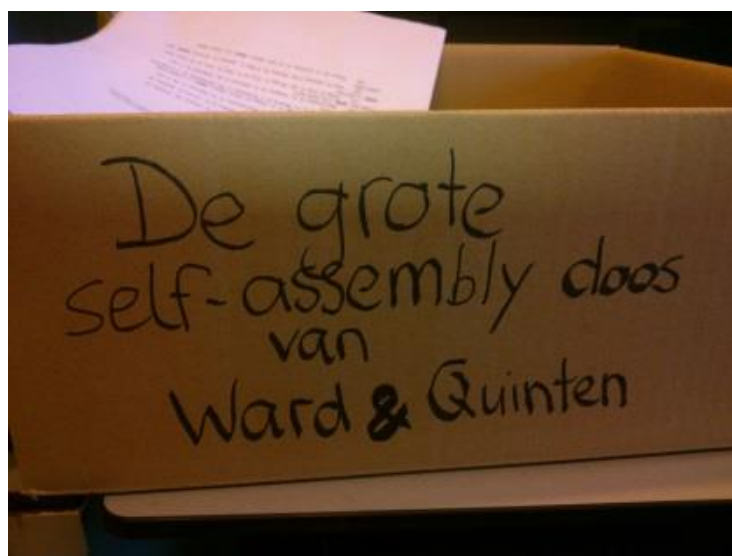 De grote
self-assembly doos
van
Ward & Quinten